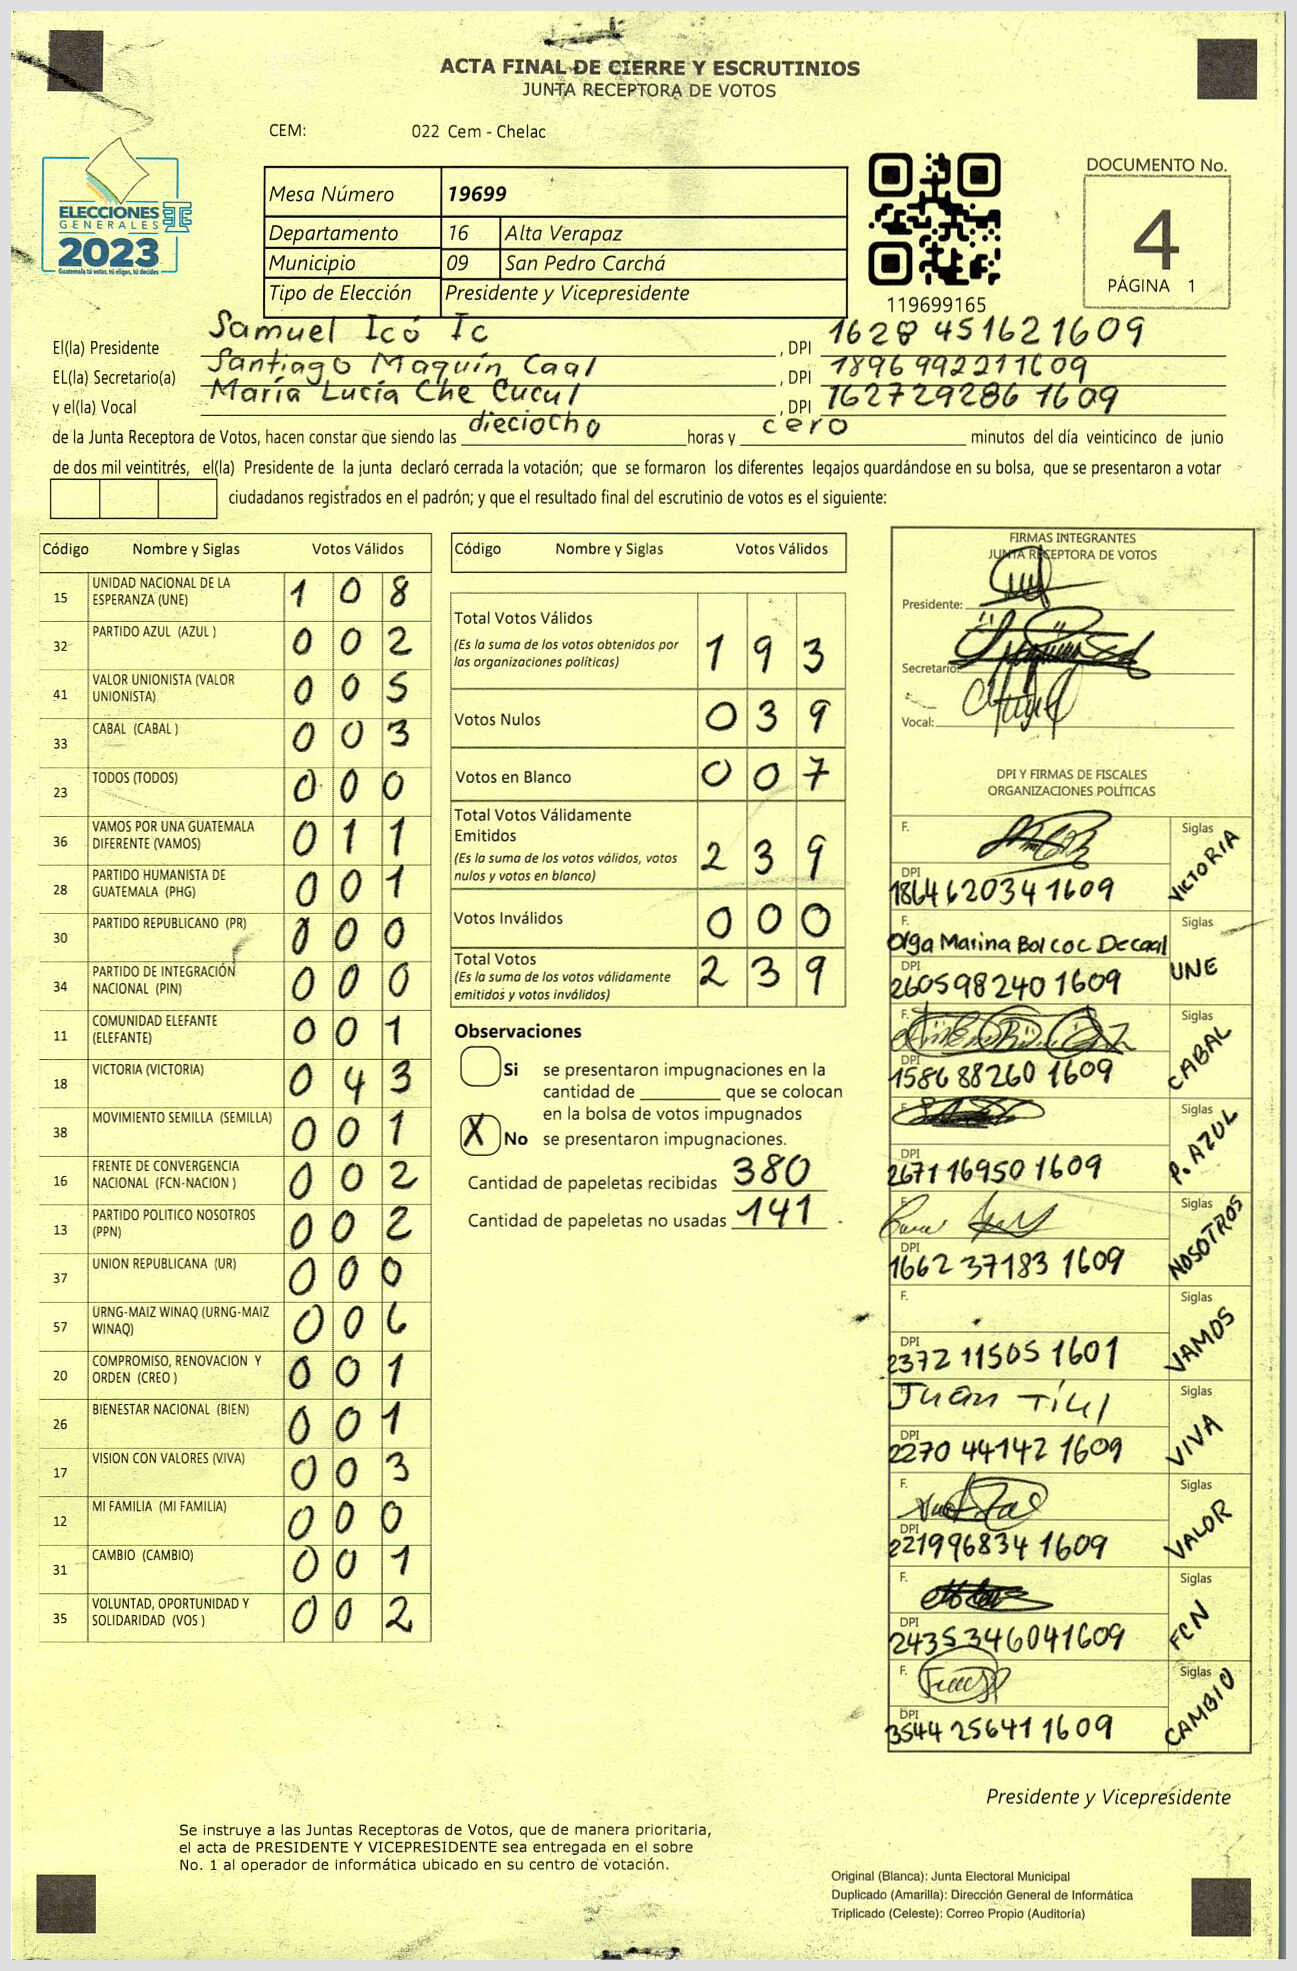 ACTA FINAL DE CIERRE Y ESCRUTINIOS
JUNTA RECEPTORA DE VOTOS
CEM: 022 Cem - Chelac
ELECCIONES
GENERALES
2023
Guatemala tú votas, tú eliges, tú decides
Mesa Número 19699
Departamento 16 Alta Verapaz
Municipio 09 San Pedro Carchá
Tipo de Elección Presidente y Vicepresidente
119699165
DOCUMENTO No.
4
PÁGINA 1
El(la) Presidente Samuel Icó Ic , DPI 1628 45162 1609
EL(la) Secretario(a) Santiago Maquín Caal , DPI 1896 99221 1609
y el(la) Vocal María Lucía Che Cucul , DPI 1627 29286 1609
de la Junta Receptora de Votos, hacen constar que siendo las dieciocho horas y cero minutos del día veinticinco de junio
de dos mil veintitrés, el(la) Presidente de la junta declaró cerrada la votación; que se formaron los diferentes legajos guardándose en su bolsa, que se presentaron a votar
ciudadanos registrados en el padrón; y que el resultado final del escrutinio de votos es el siguiente:
Código Nombre y Siglas Votos Válidos
15 UNIDAD NACIONAL DE LA ESPERANZA (UNE) 1 0 8
32 PARTIDO AZUL (AZUL ) 0 0 2
41 VALOR UNIONISTA (VALOR UNIONISTA) 0 0 5
33 CABAL (CABAL ) 0 0 3
23 TODOS (TODOS) 0 0 0
36 VAMOS POR UNA GUATEMALA DIFERENTE (VAMOS) 0 1 1
28 PARTIDO HUMANISTA DE GUATEMALA (PHG) 0 0 1
30 PARTIDO REPUBLICANO (PR) 0 0 0
34 PARTIDO DE INTEGRACIÓN NACIONAL (PIN) 0 0 0
11 COMUNIDAD ELEFANTE (ELEFANTE) 0 0 1
18 VICTORIA (VICTORIA) 0 4 3
38 MOVIMIENTO SEMILLA (SEMILLA) 0 0 1
16 FRENTE DE CONVERGENCIA NACIONAL (FCN-NACION ) 0 0 2
13 PARTIDO POLITICO NOSOTROS (PPN) 0 0 2
37 UNION REPUBLICANA (UR) 0 0 0
57 URNG-MAIZ WINAQ (URNG-MAIZ WINAQ) 0 0 6
20 COMPROMISO, RENOVACION Y ORDEN (CREO ) 0 0 1
26 BIENESTAR NACIONAL (BIEN) 0 0 1
17 VISION CON VALORES (VIVA) 0 0 3
12 MI FAMILIA (MI FAMILIA) 0 0 0
31 CAMBIO (CAMBIO) 0 0 1
35 VOLUNTAD, OPORTUNIDAD Y SOLIDARIDAD (VOS ) 0 0 2
Código Nombre y Siglas Votos Válidos
Total Votos Válidos 1 9 3
(Es la suma de los votos obtenidos por
las organizaciones políticas)
Votos Nulos 0 3 9
Votos en Blanco 0 0 7
Total Votos Válidamente
Emitidos 2 3 9
(Es la suma de los votos válidos, votos
nulos y votos en blanco)
Votos Inválidos 0 0 0
Total Votos 2 3 9
(Es la suma de los votos válidamente
emitidos y votos inválidos)
Observaciones
Si se presentaron impugnaciones en la
cantidad de ________ que se colocan
en la bolsa de votos impugnados
X No se presentaron impugnaciones.
Cantidad de papeletas recibidas 380
Cantidad de papeletas no usadas 141
FIRMAS INTEGRANTES
JUNTA RECEPTORA DE VOTOS
Presidente:
Secretario:
Vocal:
DPI Y FIRMAS DE FISCALES
ORGANIZACIONES POLÍTICAS
F. Siglas VICTORIA
DPI 1864 62034 1609
F. Olga Marina Bol coc De caal Siglas UNE
DPI 2605 98240 1609
F. Siglas CABAL
DPI 1586 88260 1609
F. Siglas P. AZUL
DPI 2671 16950 1609
F. Siglas NOSOTROS
DPI 1662 37183 1609
F. Siglas VAMOS
DPI 2372 11505 1601
F. Juan Tiul Siglas VIVA
DPI 2270 44142 1609
F. Siglas VALOR
DPI 2219 96834 1609
F. Siglas FCN
DPI 2435 34604 1609
F. Siglas CAMBIO
DPI 3544 25641 1609
Presidente y Vicepresidente
Se instruye a las Juntas Receptoras de Votos, que de manera prioritaria,
el acta de PRESIDENTE Y VICEPRESIDENTE sea entregada en el sobre
No. 1 al operador de informática ubicado en su centro de votación.
Original (Blanca): Junta Electoral Municipal
Duplicado (Amarilla): Dirección General de Informática
Triplicado (Celeste): Correo Propio (Auditoría)